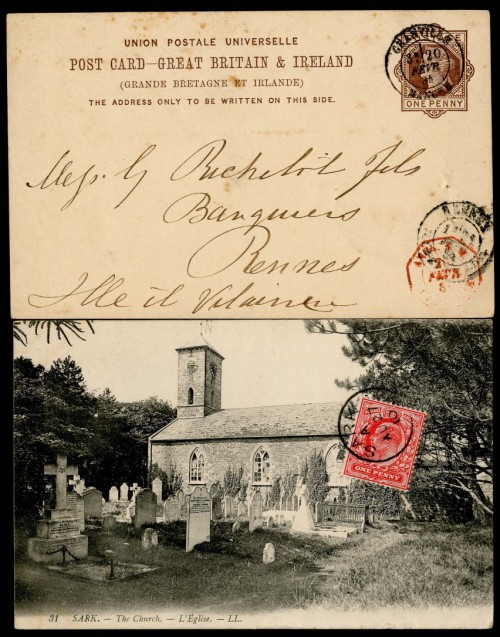 UNION POSTALE UNIVERSELLE
POST CARD—GREAT BRITAIN & IRELAND
(GRANDE BRETAGNE ET IRLANDE)
THE ADDRESS ONLY TO BE WRITTEN ON THIS SIDE.
GRANVILLE
20
FEVR
MANCHE
ONE PENNY
Messrs G Richelot fils
Banquiers
Rennes
Ille et Vilaine
RENNES
FEVR
SARK
ONE PENNY
31 SARK. — The Church. — L'Église. — LL.